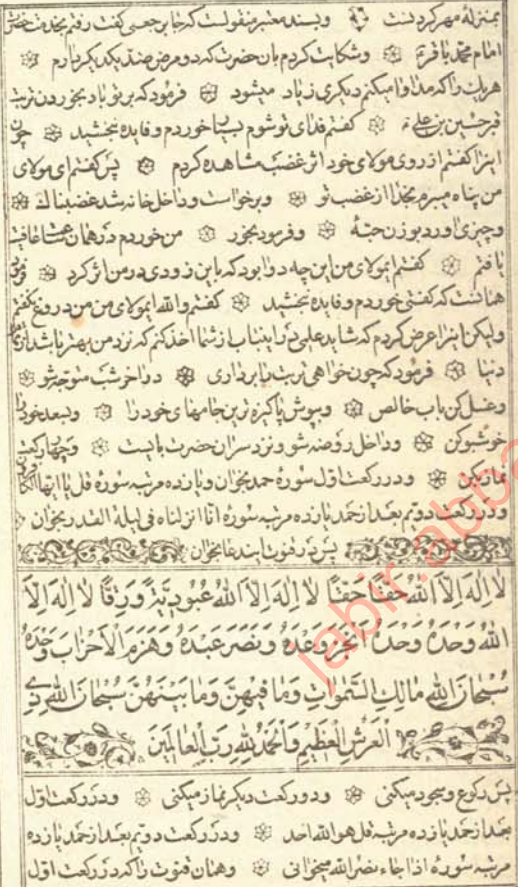 بمنزلهٔ مهر کردنست و بسند معتبر منقولست که جابر جعفی گفت رفتم بخدمت حضرت
امام محمد باقر ع و شکایت کردم بان حضرت که دو مرض ضد یکدیکر دارم
هریك را که مداوا میکنم دیکری زیاد میشود فرمود که بر تو باد بخوردن تربت
قبر حسین بن علی ع گفتم فدای تو شوم بسیار خوردم و فایده نبخشید چون
اینرا گفتم از روی مولای خود اثر غضب مشاهده کردم پس گفتم ای مولای
من پناه میبرم بخدا از غضب تو و برخواست و داخل خانه شد غضبناك
و چیزی اورد بوزن حبّه و فرمود بخور من خوردم در همان ساعت عافیت
یافتم گفتم ایمولای من این چه دوا بود که باین زودی در من اثر کرد فرمود
همانست که گفتی خوردم و فایده نبخشید گفتم والله ایمولای من من دروغ نگفتم
ولیکن اینرا عرض کردم که شاید علمی در اینباب از شما اخذ کنم که نزد من بهتر باشد از تمام
دنیا فرمود که چون خواهی تربت را برداری در اخر شب متوجه شو
و غسل کن باب خالص و بپوش پاکیزه ترین جامهای خود را و بسعد خود را
خوشبو کن و داخل روضه شو و نزد سر ان حضرت بایست و چهار رکعت
نماز بکن و در رکعت اوّل سورهٔ حمد بخوان و یازده مرتبه سورهٔ قل یا ایها الکافرون
و در رکعت دویم بعد از حمد یازده مرتبه سورهٔ انا انزلناه فی لیلة القدر بخوان
پس در قنوت ایندعا بخوان
لا اِلهَ اِلّا اللهُ حَقًّا حَقًّا لا اِلهَ اِلّا اللهُ عُبُودِیَّةً وَرِقًّا لا اِلهَ اِلّا
اللهُ وَحْدَهُ وَحْدَهُ اَنْجَزَ وَعْدَهُ وَنَصَرَ عَبْدَهُ وَهَزَمَ الْاَحْزابَ وَحْدَهُ
سُبْحانَ اللهِ مالِكِ السَّمواتِ وَما فیهِنَّ وَما بَیْنَهُنَّ سُبْحانَ اللهِ ذِی
الْعَرْشِ الْعَظیمِ وَالْحَمْدُ لِلهِ رَبِّ الْعالَمینَ
پس رکوع و سجود میکنی و دو رکعت دیکر نماز میکنی و در رکعت اوّل
بعد از حمد یازده مرتبه قل هو الله احد و در رکعت دویم بعد از حمد یازده
مرتبه سورهٔ اذا جاء نصر الله میخوانی و همان قنوت را که در رکعت اول
jabir.abbas